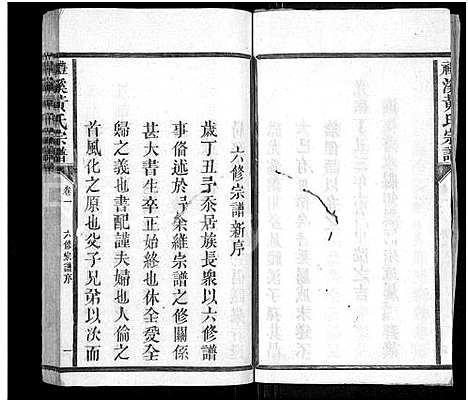 六修宗譜新序
歲丁丑予忝居族長衆以六修譜
事偹述於予余維宗譜之修關係
甚大書生卒正始終也休全愛全
歸之義也書配謹夫婦也人倫之
首風化之原也父子兄弟以次而
禮溪黃氏宗譜
卷一
六修宗譜序
一
禮溪黃氏宗譜